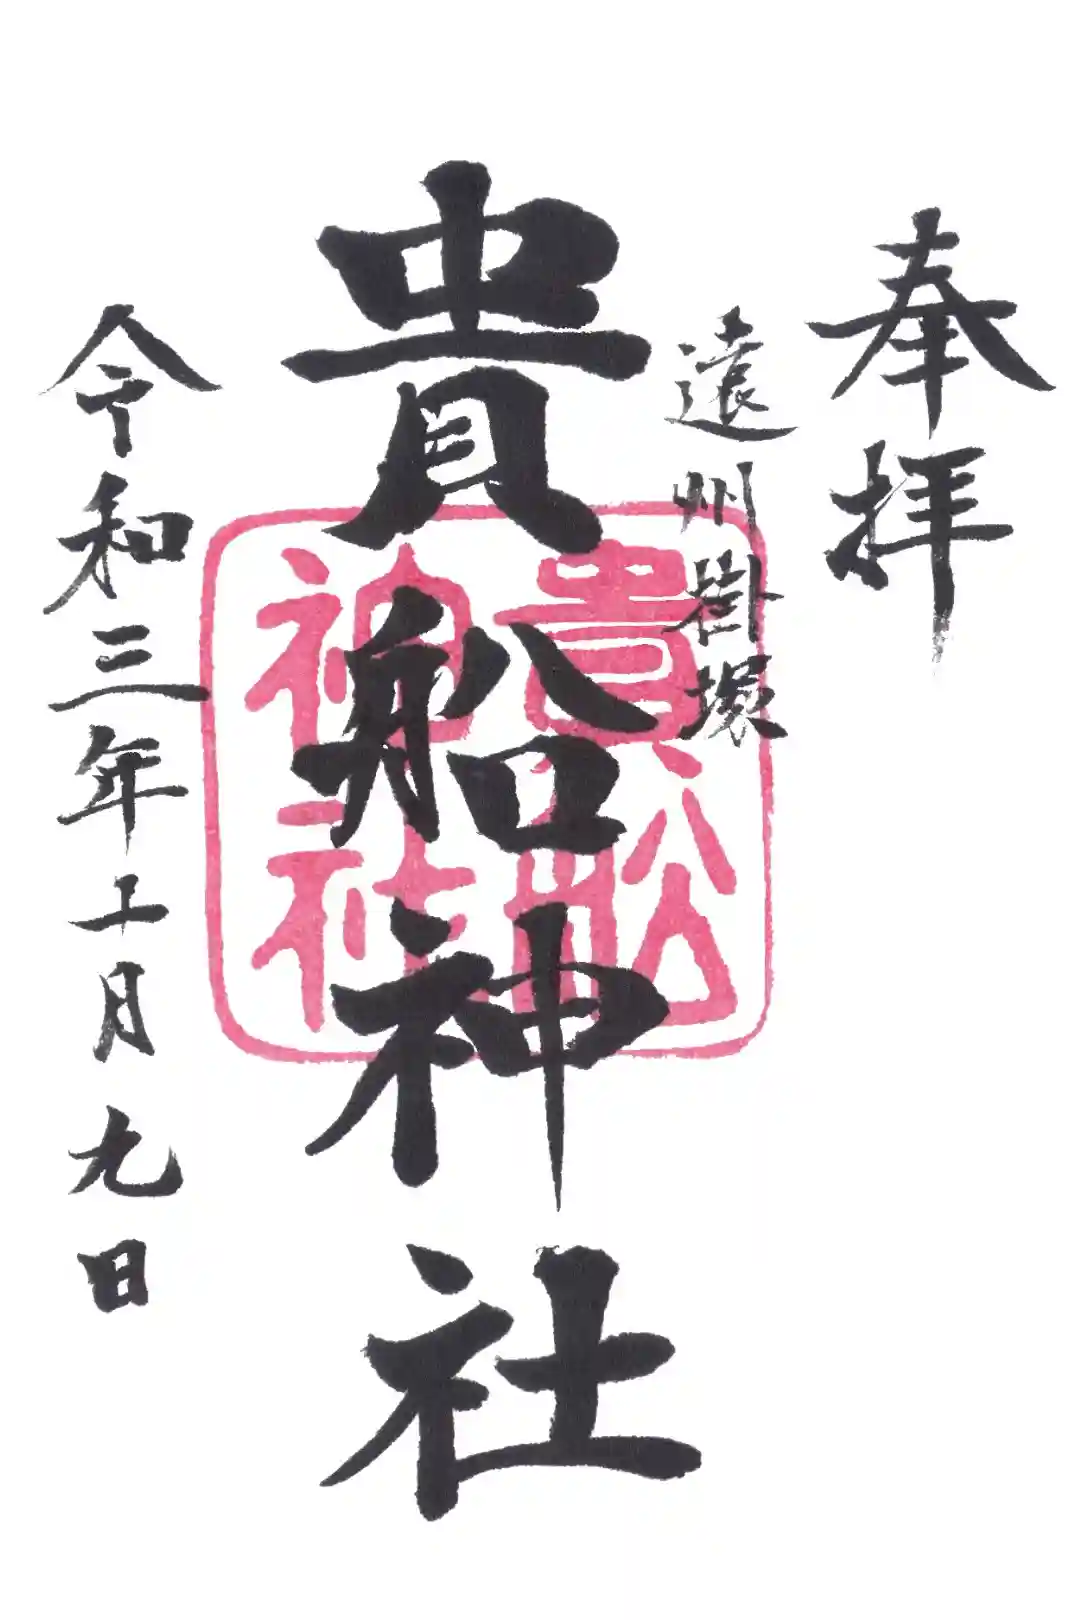 奉拝
遠州掛塚
貴船神社
令和三年十月九日
貴船
神社